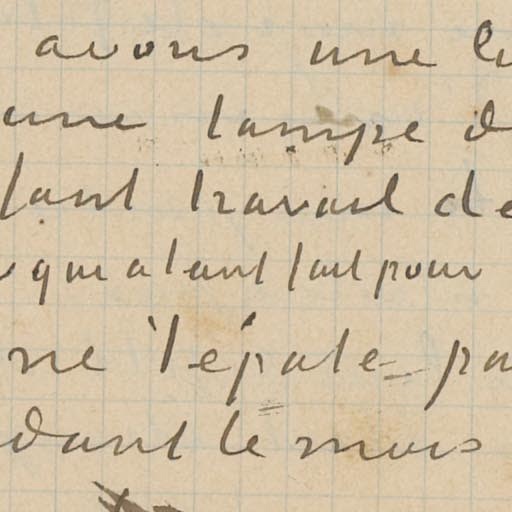 avons une
une lampe d
fant travail de
qui a tant fait pour
ne t'épate pa
dant le mois